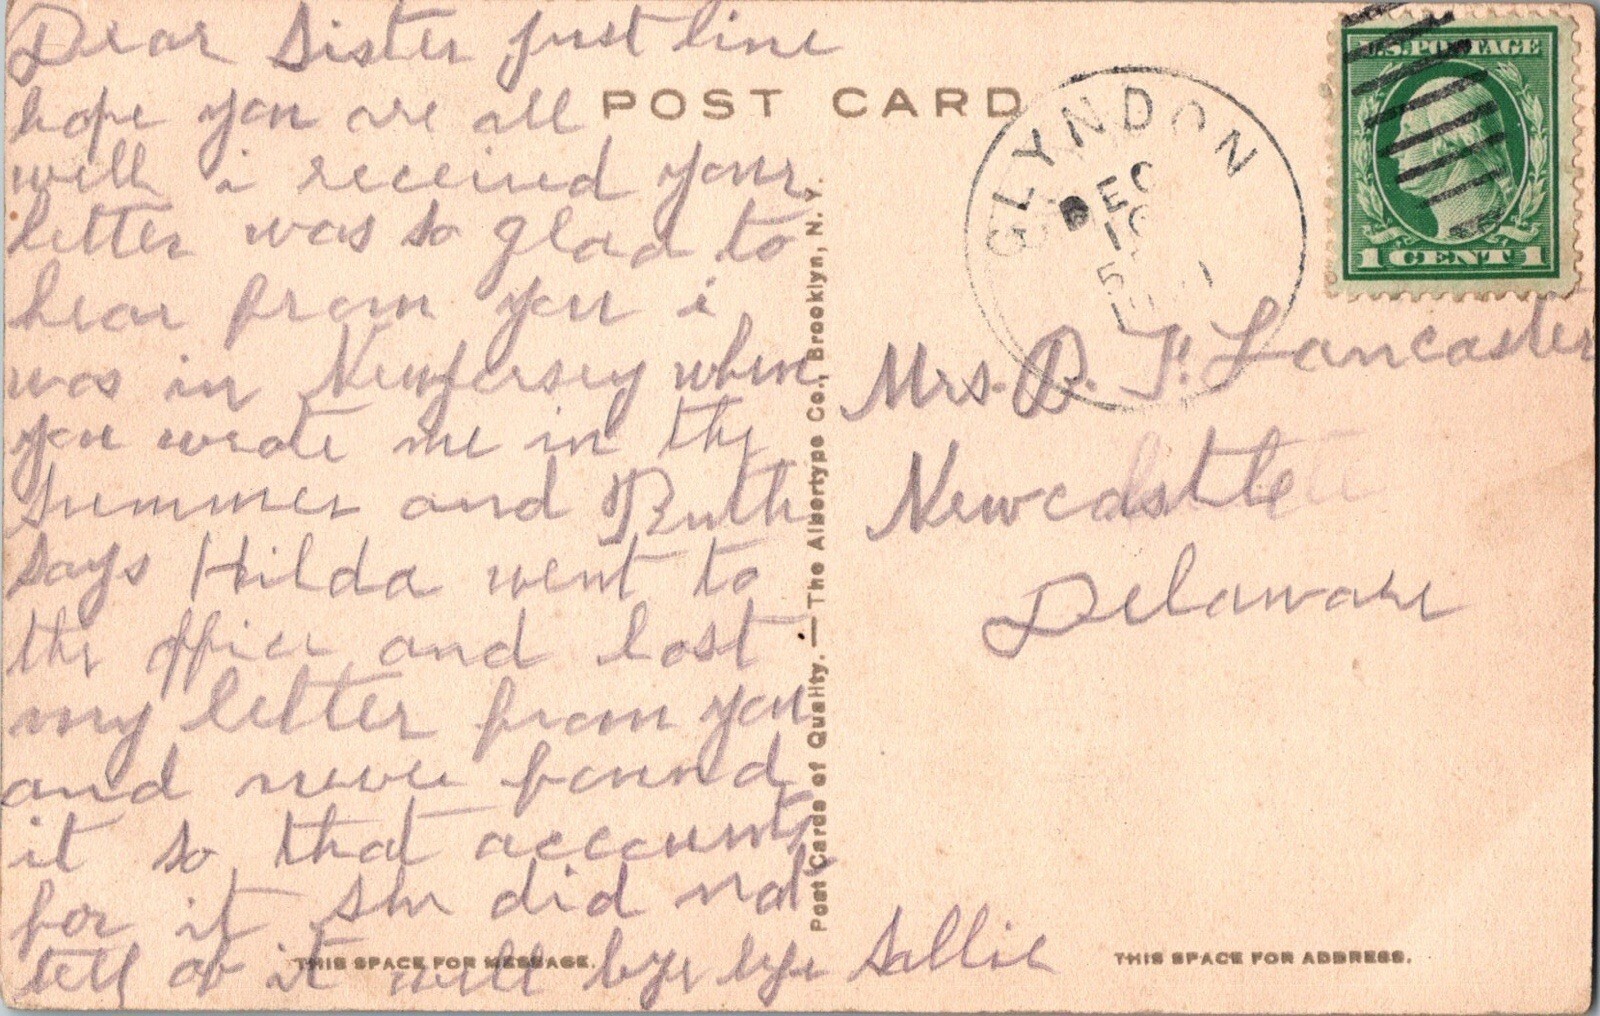 Dear Sister just line
hope you are all
well i received your
letter was so glad to
hear from you i
was in Newjersey when
you wrote me in the
summer and Ruth
says Hilda went to
the office and lost
my letter from you
and never found
it so that accounts
for it she did not
tell of it well bye bye Sallie
THIS SPACE FOR MESSAGE.
POST CARD
Post Cards of Quality. — The Albertype Co., Brooklyn, N. Y.
GLYNDON
DEC
U.S. POSTAGE
1 CENT 1
Mrs. D. F. Lancaster
Newcastle
Delaware
THIS SPACE FOR ADDRESS.